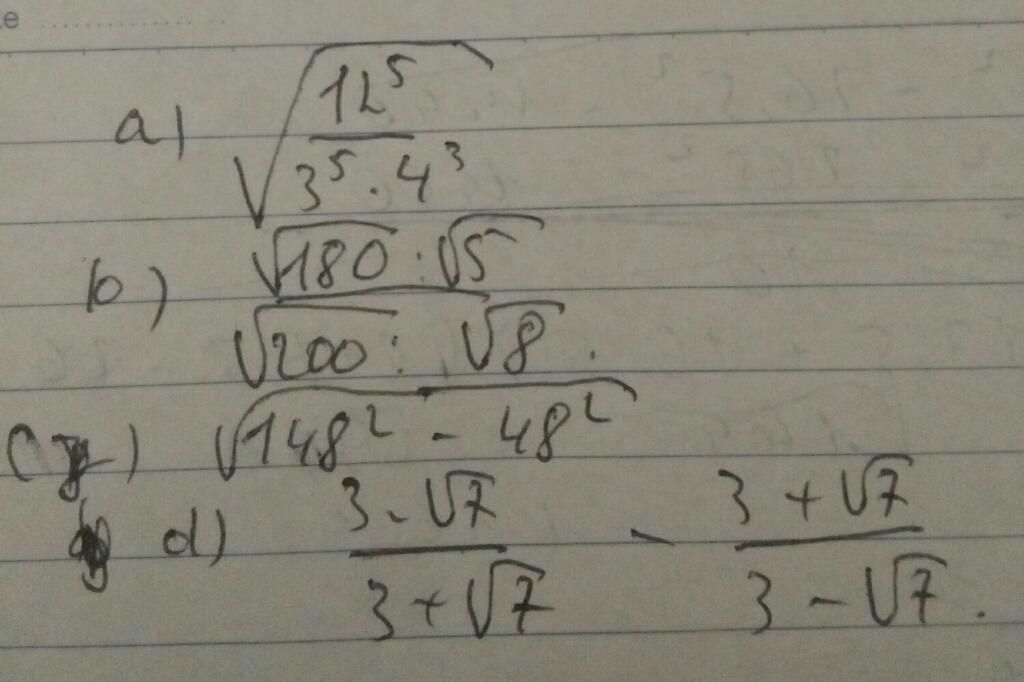 e
a) √(12⁵ / (3⁵ · 4³))
b) (√180 : √5) / (√200 : √8).
c) √(148² - 48²)
d) (3 - √7) / (3 + √7) - (3 + √7) / (3 - √7).